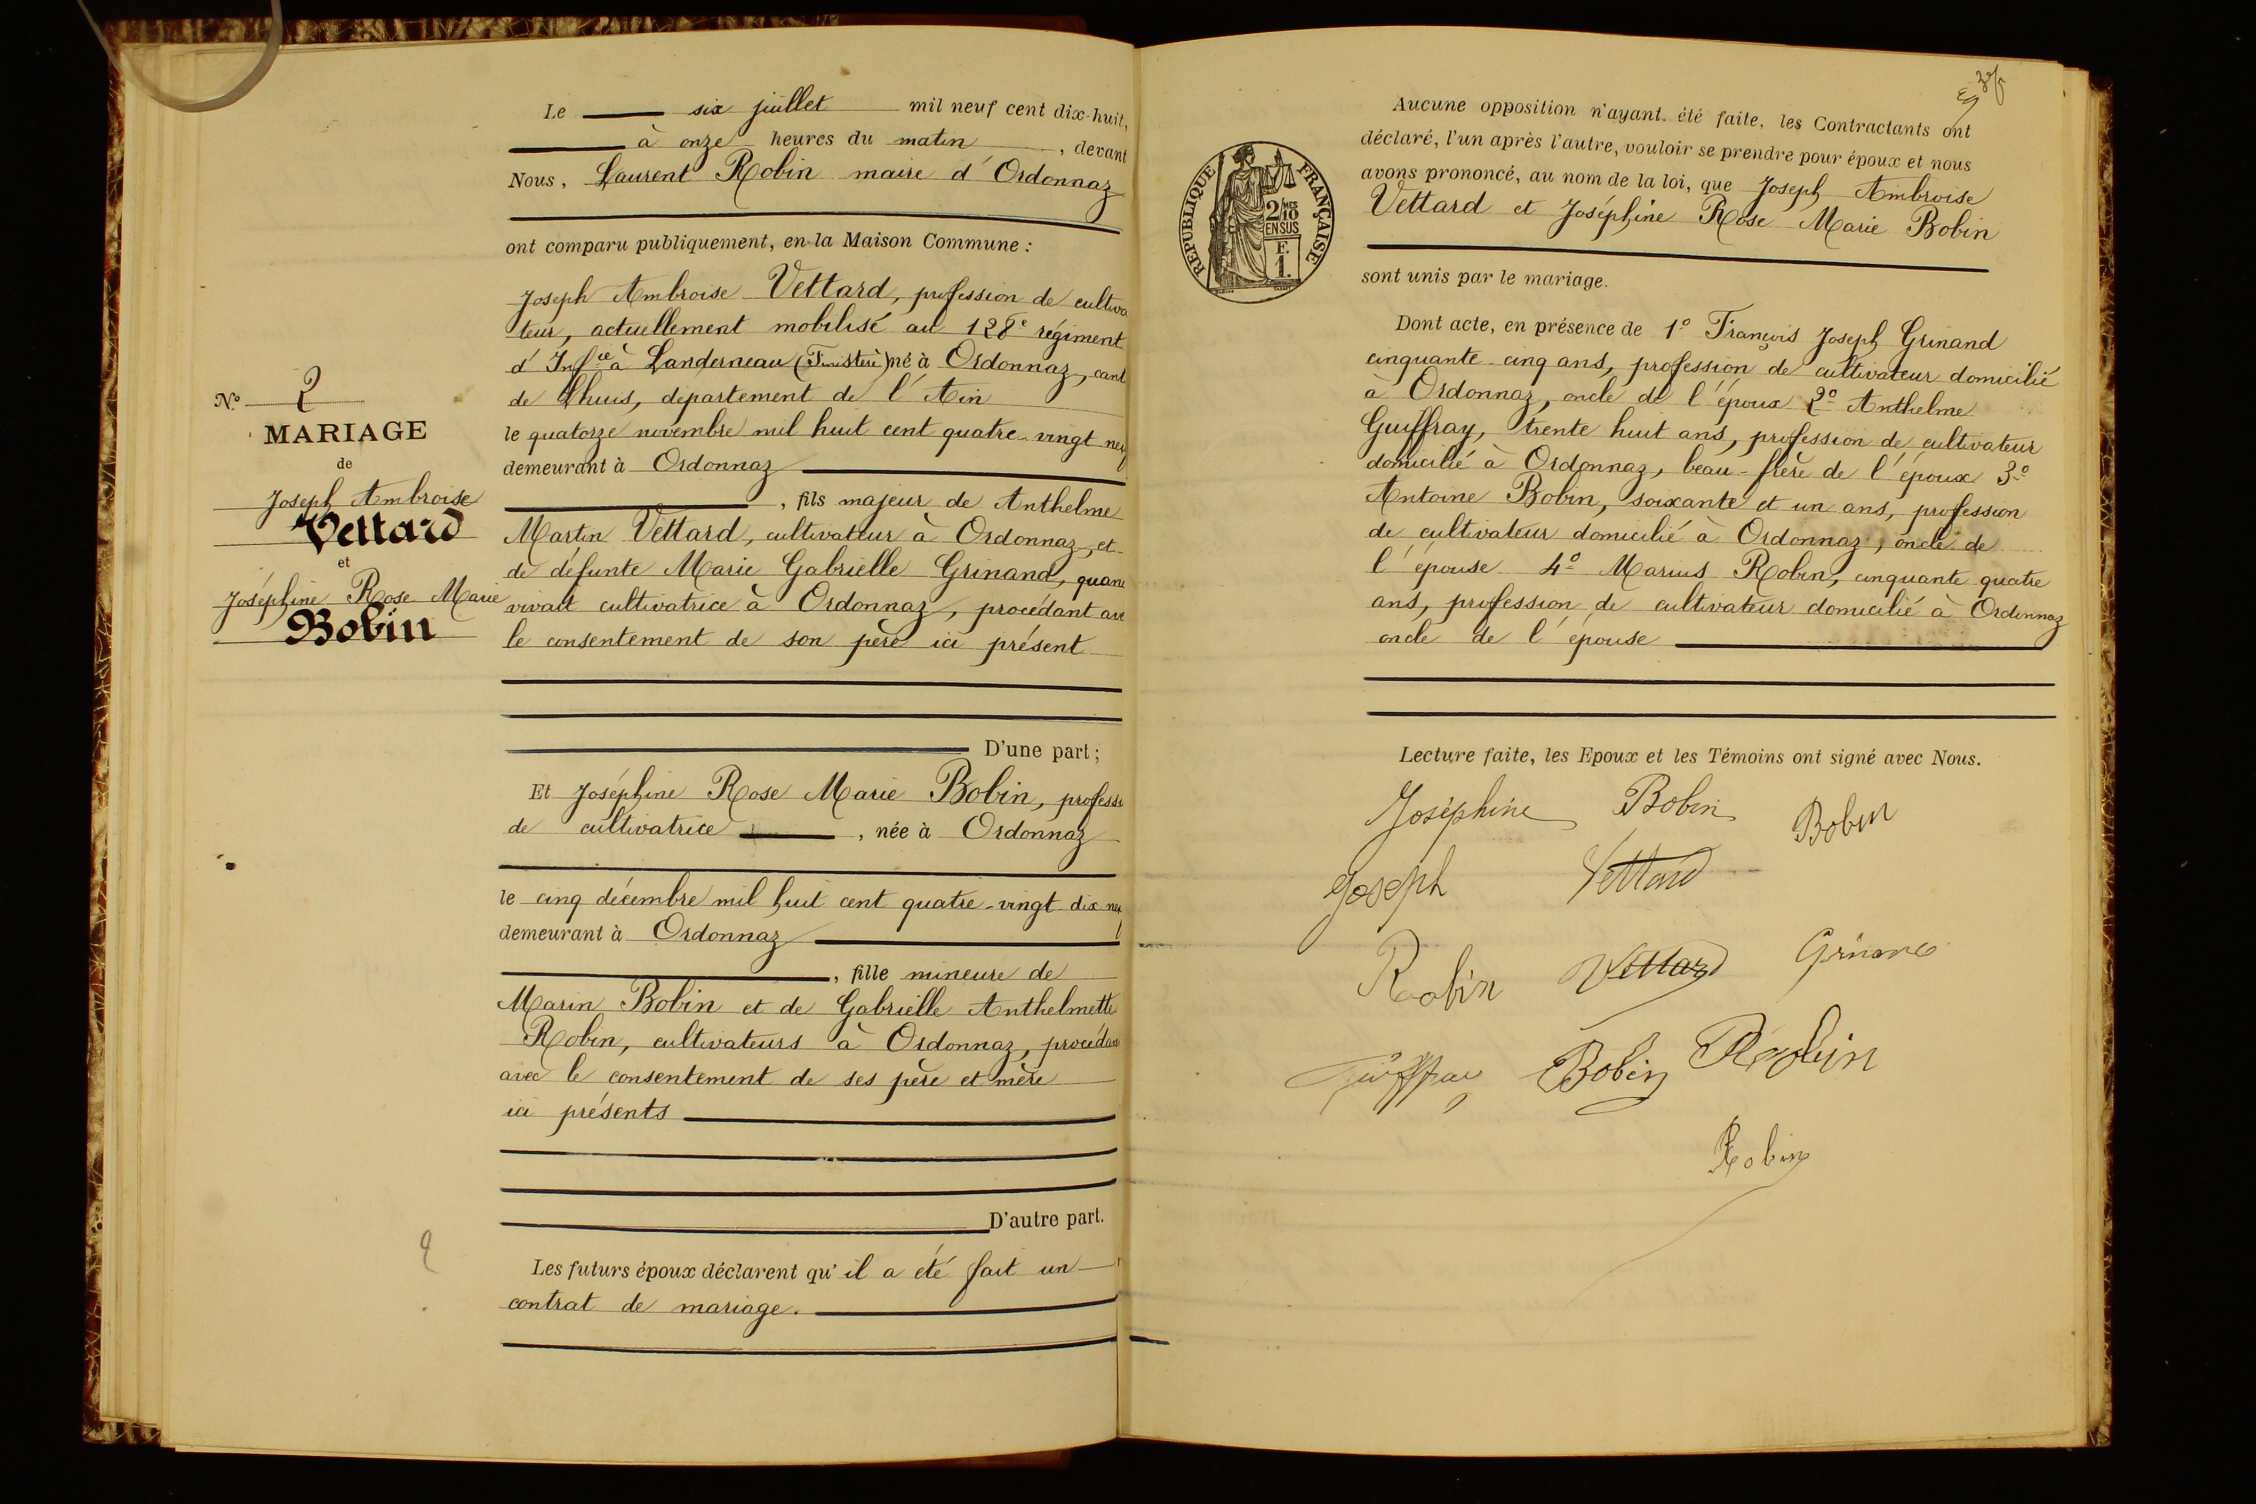 Le six juillet mil neuf cent dix-huit,
à onze heures du matin, devant
Nous, Laurent Robin maire d'Ordonnaz
ont comparu publiquement, en la Maison Commune :
Joseph Ambroise Vettard, profession de cultiva
teur, actuellement mobilisé au 128e régiment
d'Infie à Landerneau (Finistère) né à Ordonnaz, cant
de Lhuis, département de l'Ain
le quatorze novembre mil huit cent quatre-vingt neuf
demeurant à Ordonnaz
, fils majeur de Anthelme
Martin Vettard, cultivateur à Ordonnaz, et
de défunte Marie Gabrielle Grinand, quand
vivait cultivatrice à Ordonnaz, procédant ave
le consentement de son père ici présent
D'une part ;
Et Joséphine Rose Marie Bobin, professi
de cultivatrice, née à Ordonnaz
le cinq décembre mil huit cent quatre-vingt dix neuf
demeurant à Ordonnaz
, fille mineure de
Marin Bobin et de Gabrielle Anthelmette
Robin, cultivateurs à Ordonnaz, procédan
avec le consentement de ses père et mère
ici présents
D'autre part.
Les futurs époux déclarent qu'il a été fait un
contrat de mariage.
No 2
MARIAGE
de
Joseph Ambroise
Vettard
et
Joséphine Rose Marie
Bobin
2
RÉPUBLIQUE FRANÇAISE
2/10 MES
EN SUS
F.
1.
Aucune opposition n'ayant été faite, les Contractants ont
déclaré, l'un après l'autre, vouloir se prendre pour époux et nous
avons prononcé, au nom de la loi, que Joseph Ambroise
Vettard et Joséphine Rose Marie Bobin
sont unis par le mariage.
Dont acte, en présence de 1o François Joseph Grinand
cinquante cinq ans, profession de cultivateur domicilié
à Ordonnaz, oncle de l'époux 2o Anthelme
Guiffray, trente huit ans, profession de cultivateur
domicilié à Ordonnaz, beau-frère de l'époux 3o
Antoine Bobin, soixante et un ans, profession
de cultivateur domicilié à Ordonnaz, oncle de
l'épouse 4o Marius Robin, cinquante quatre
ans, profession de cultivateur domicilié à Ordonnaz
oncle de l'épouse
Lecture faite, les Epoux et les Témoins ont signé avec Nous.
Joséphine Bobin Bobin
Joseph Vettard
Robin Vettard Grinand
Guiffray Bobin Robin
Robin